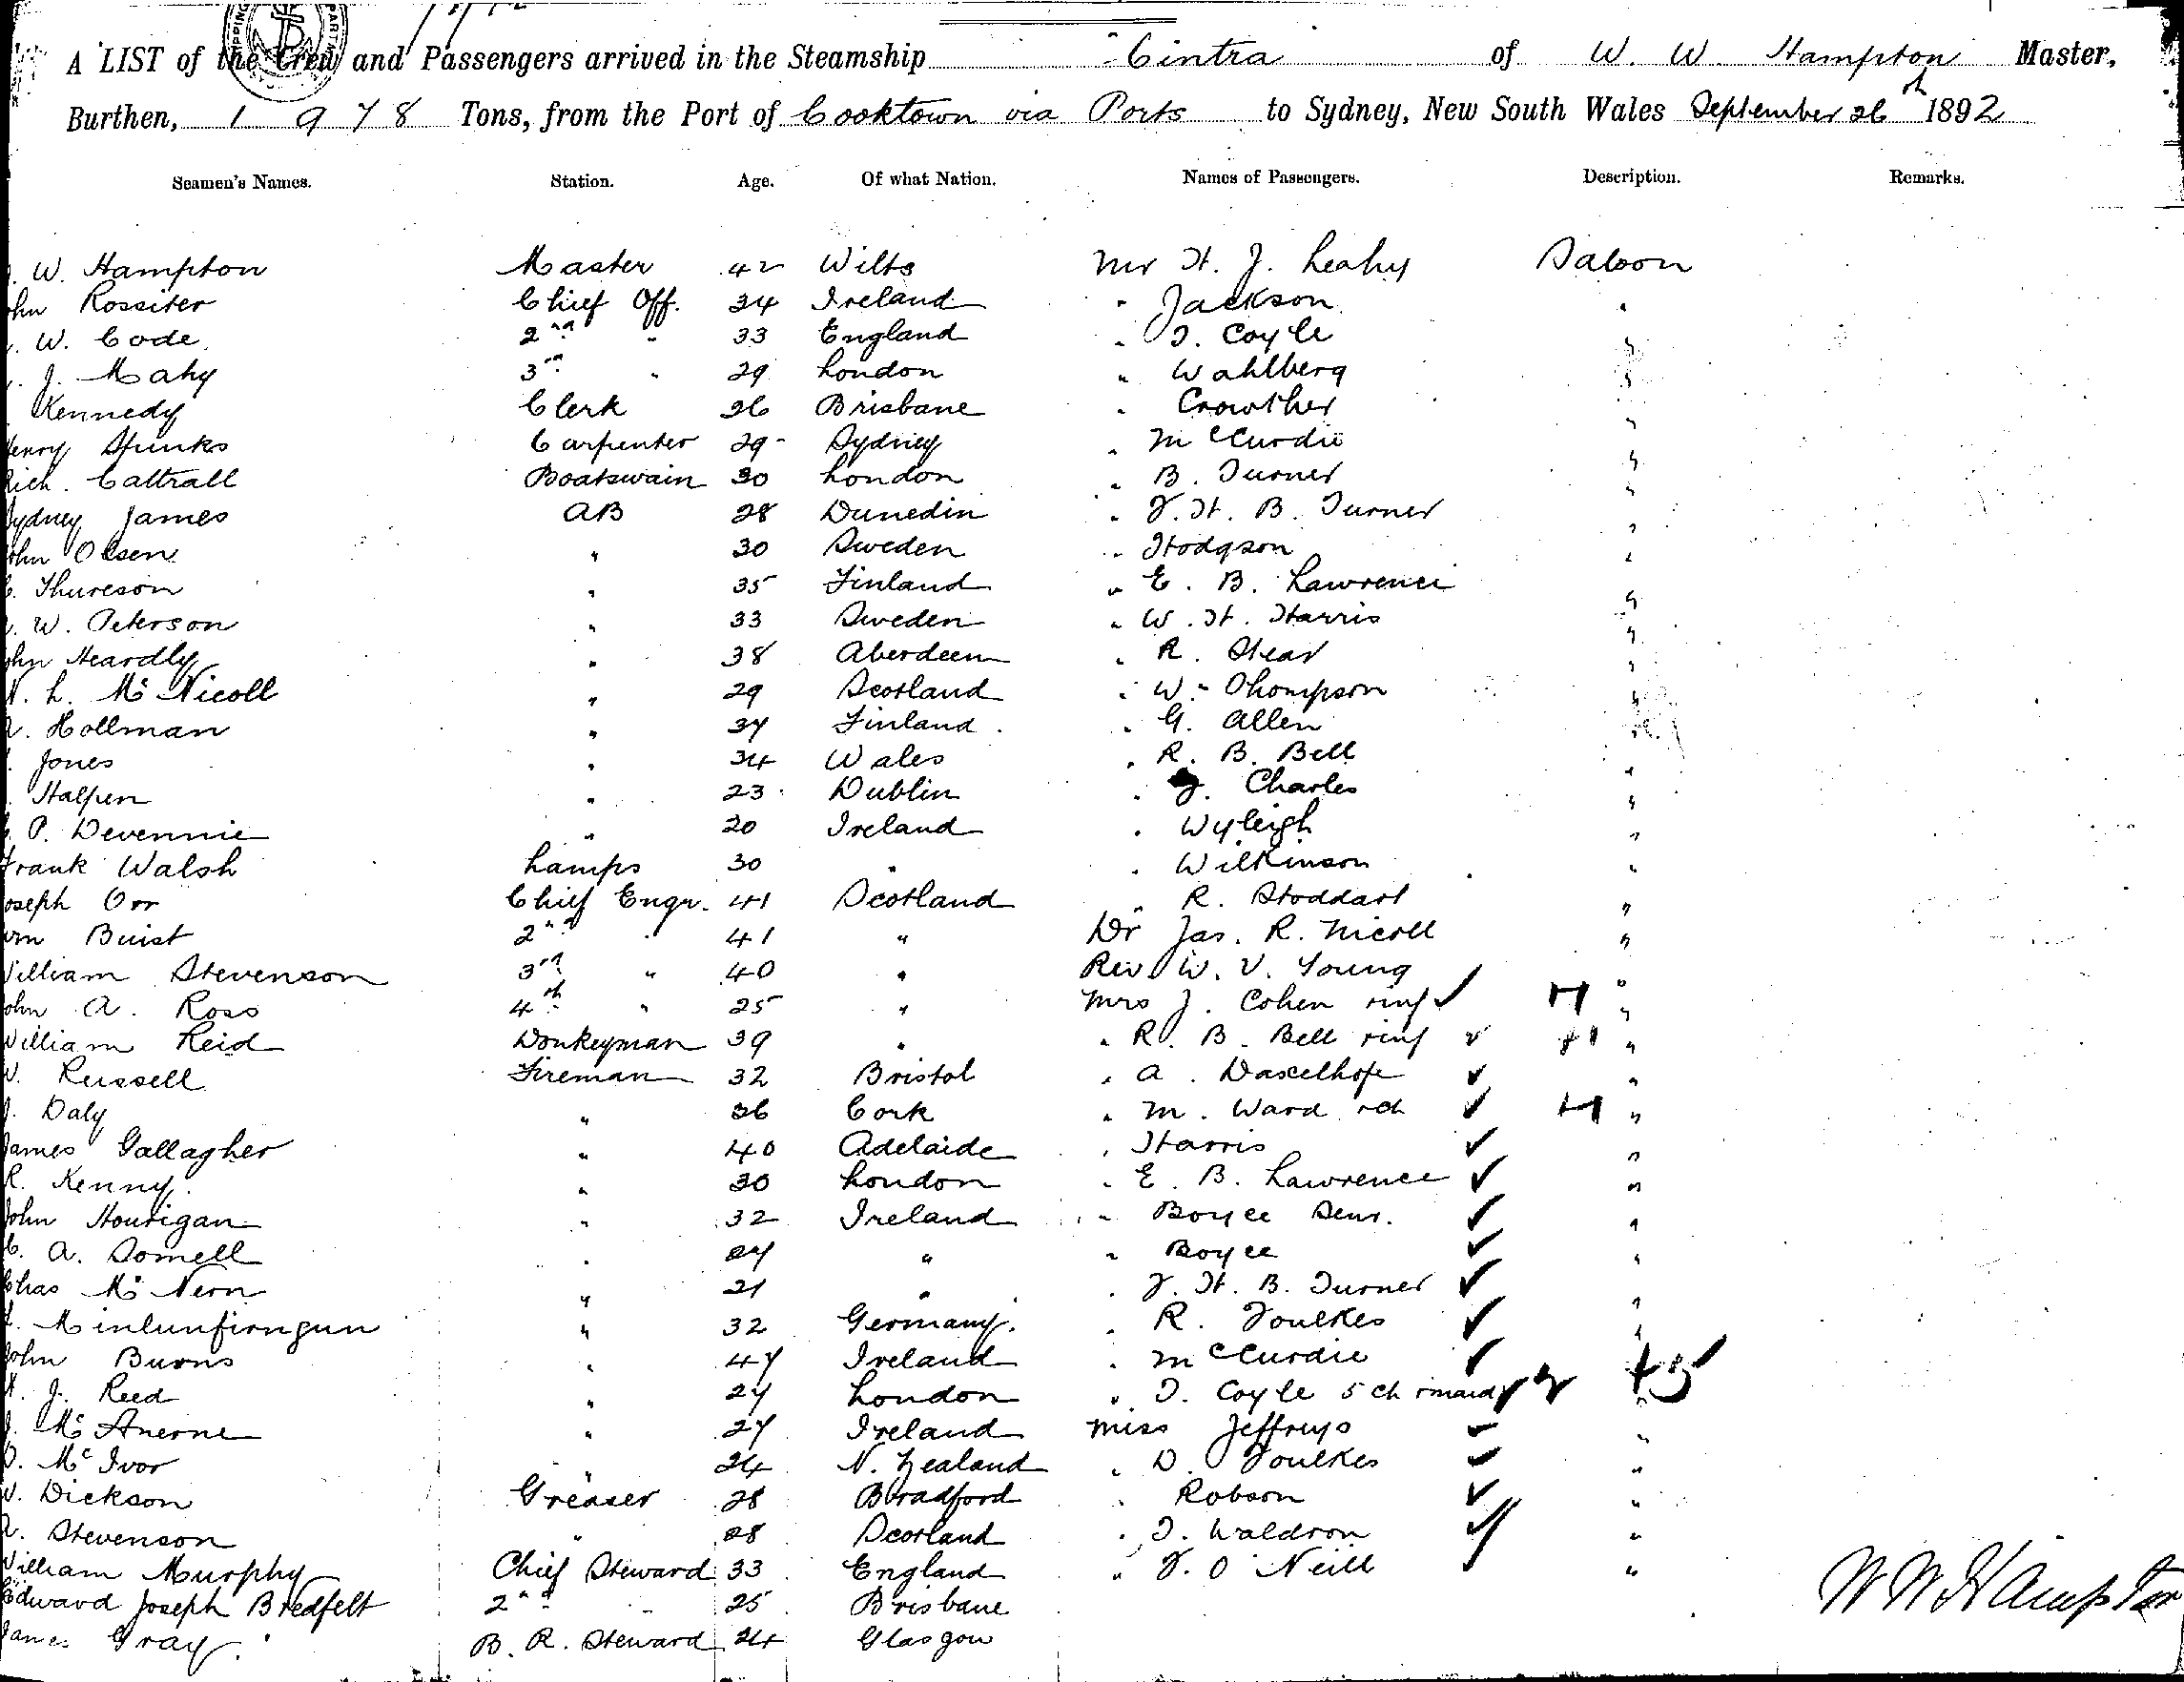 A LIST of the Crew and Passengers arrived in the Steamship Cintra of W. W. Hampton Master,
Burthen, 1978 Tons, from the Port of Cooktown via Ports to Sydney, New South Wales September 26th 1892
Seamen's Names. Station. Age. Of what Nation. Names of Passengers. Description. Remarks.
W. Hampton Master 42 Wilts Mr H. J. Leahy Saloon
John Rossiter Chief Off. 34 Ireland " Jackson "
W. Code 2nd " 33 England " T. Coyle "
J. Mahy 3rd " 29 London " Wahlberg "
Kennedy Clerk 26 Brisbane " Crowther "
Henry Spunks Carpenter 29 Sydney " McCurdie "
Rich. Cattrall Boatswain 30 London " B. Turner "
Sydney James AB 28 Dunedin " F. H. B. Turner "
John Olsen " 30 Sweden " Hodgson "
C. Thureson " 35 Finland " E. B. Lawrence "
W. Peterson " 33 Sweden " W. H. Harris "
John Heardly " 38 Aberdeen " R. Stear "
L. McNicoll " 29 Scotland " W. Thompson "
Hollman " 37 Finland " G. Allen "
Jones " 34 Wales " R. B. Bell "
Halpen " 23 Dublin " J. Charles "
P. Devennie " 20 Ireland " Wyleigh "
Frank Walsh Lamps 30 " " Wilkinson "
Joseph Orr Chief Engr. 41 Scotland " R. Stoddart "
Wm Buist 2nd " 41 " Dr Jas. R. Nicoll "
William Stevenson 3rd " 40 " Rev W. V. Young "
John A. Ross 4th " 25 " Mrs J. Cohen "
William Reid Donkeyman 39 " " R. B. Bell "
W. Russell Fireman 32 Bristol " A. Daxelhofe "
J. Daly " 36 Cork " M. Ward "
James Gallagher " 40 Adelaide " Harris "
R. Kenny " 30 London " E. B. Lawrence "
John Hourigan " 32 Ireland " Boyce Senr. "
C. A. Somell " 27 " " Boyce "
Chas McNern " 21 " " F. H. B. Turner "
Minlunfirngun " 32 Germany. " R. Foulkes "
John Burns " 47 Ireland " McCurdie "
J. Reed " 27 London " T. Coyle 5 ch "
McAnerne " 27 Ireland Miss Jeffreys "
McIvor " 24 N. Zealand " D. Foulkes "
W. Dickson Greaser 28 Bradford " Robson "
Stevenson " 28 Scotland " T. Waldron "
William Murphy Chief Steward 33 England " F. O'Neill "
Edward Joseph Bredfelt 2nd " 25 Brisbane
James Gray B. R. Steward 24 Glasgow
W W Hampton